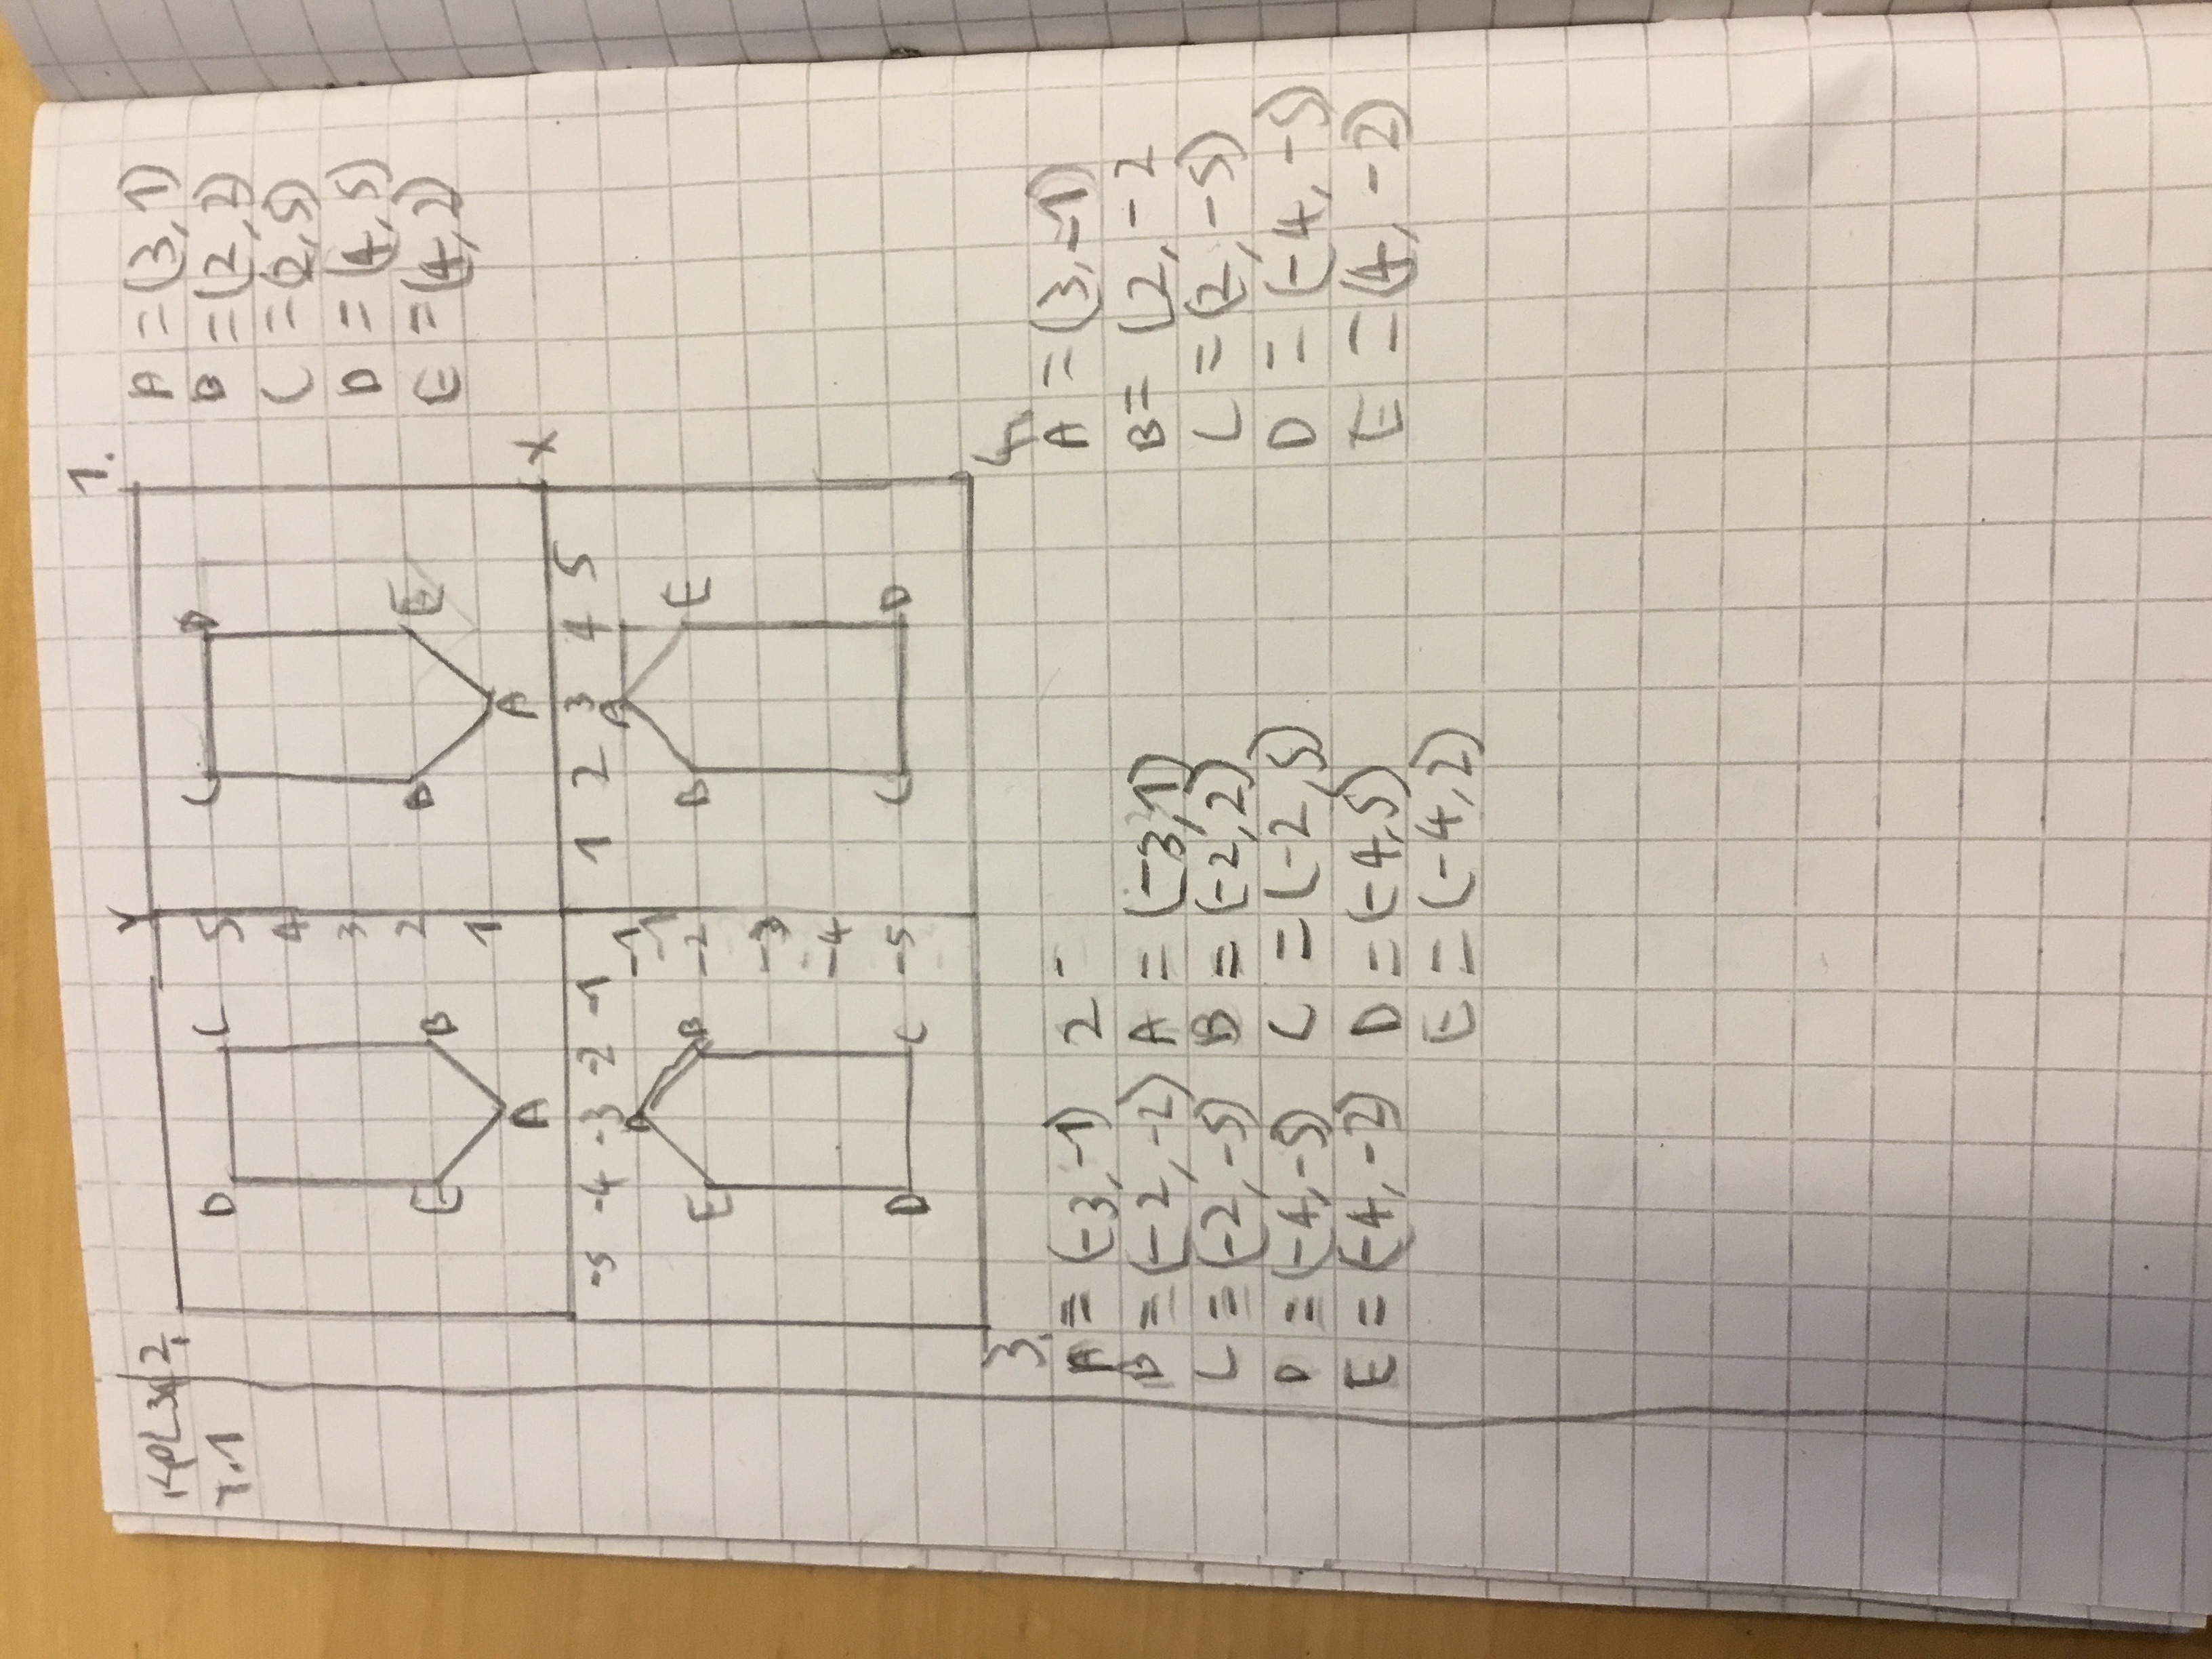 kpl 3x2
T.1
2.
1.
A = (3,1)
B = (2,2)
C = (2,5)
D = (4,5)
E = (4,2)
Y
D C C D
5
4
3
E B 2 B E
1
A A
X
-5 -4 -3 -2 -1 1 2 3 4 5
A -1 A
E B -2 B E
-3
-4
D C -5 C D
3.
A = (-3,-1)
B = (-2,-2)
C = (-2,-5)
D = (-4,-5)
E = (-4,-2)
2-
A = (-3,1)
B = (-2,2)
C = (-2,5)
D = (-4,5)
E = (-4,2)
4
A = (3,-1)
B = (2,-2
C = (2,-5)
D = (-4,-5)
E = (4,-2)